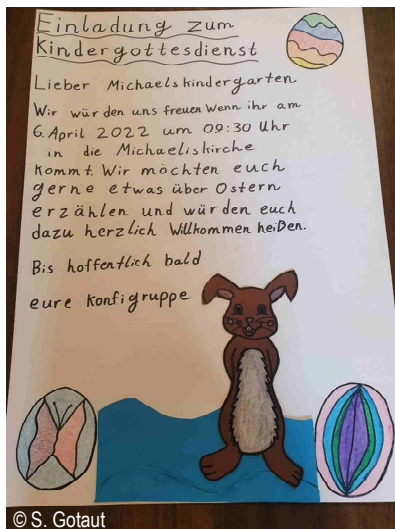 Einladung zum
Kindergottesdienst
Lieber Michaelskindergarten
Wir würden uns freuen wenn ihr am
6. April 2022 um 09:30 Uhr
in die Michaeliskirche
kommt. Wir möchten euch
gerne etwas über Ostern
erzählen und würden euch
dazu herzlich Willkommen heißen.
Bis hoffentlich bald
eure Konfigruppe
© S. Gotaut